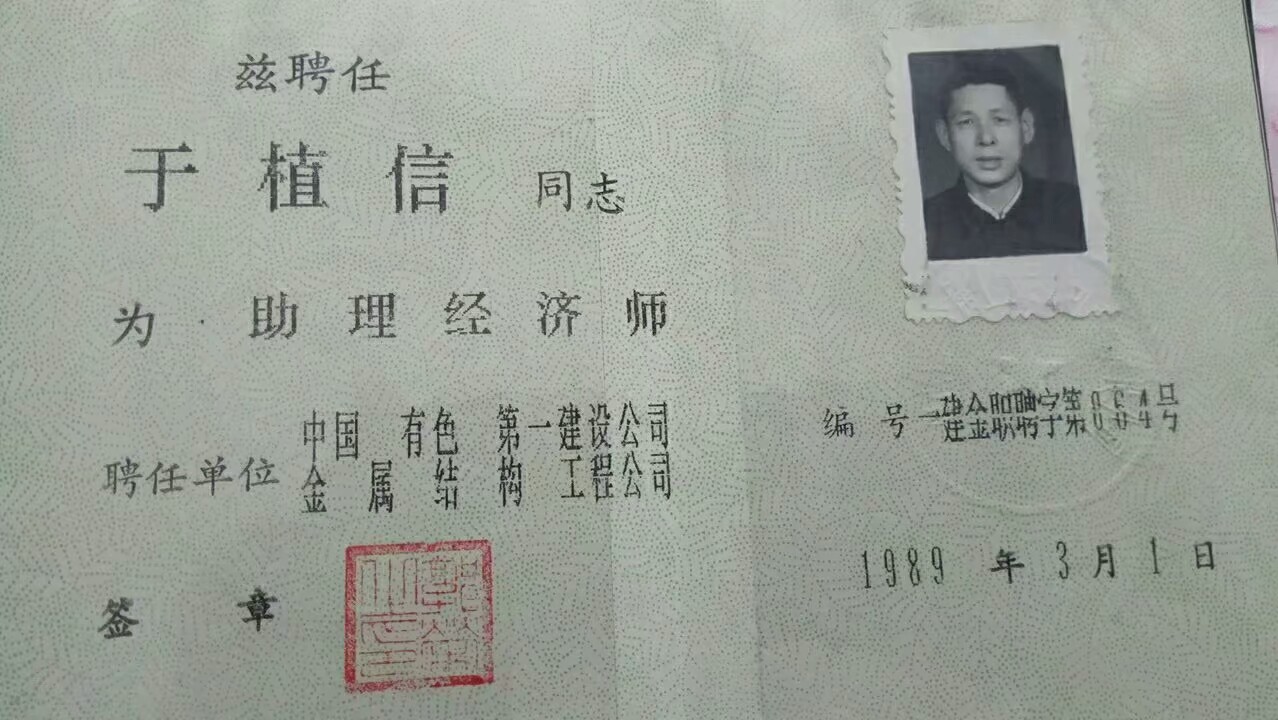 兹聘任
于植信 同志
为 助理经济师
中国有色第一建设公司
聘任单位
金属结构工程公司
编号 一建金职聘字第0604号
1989 年 3 月 1 日
签 章